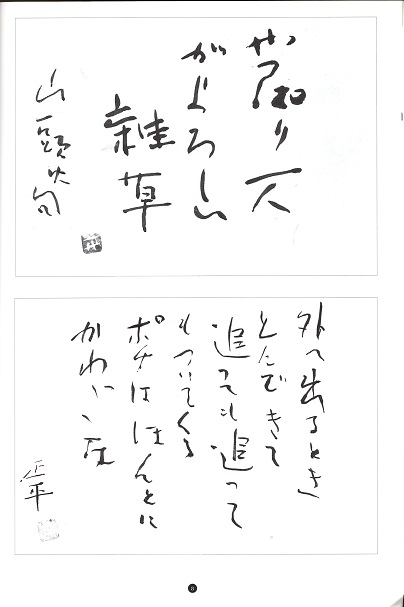 一人
がよろしい
雑草
山頭火句
外へ出るとき
とんできて
追っても追って
もついてくる
ポチはほんとに
かわいいな
正平
8